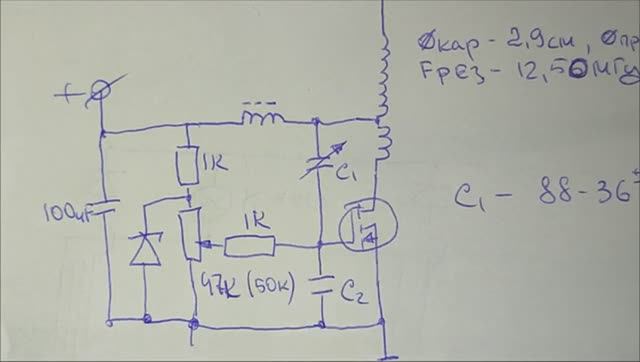 Øкар - 2,9см, Øпр
Fрез - 12,50мГц
+
1K
C₁
C₁ - 88-36
100uF
1K
47K (50K)
C₂